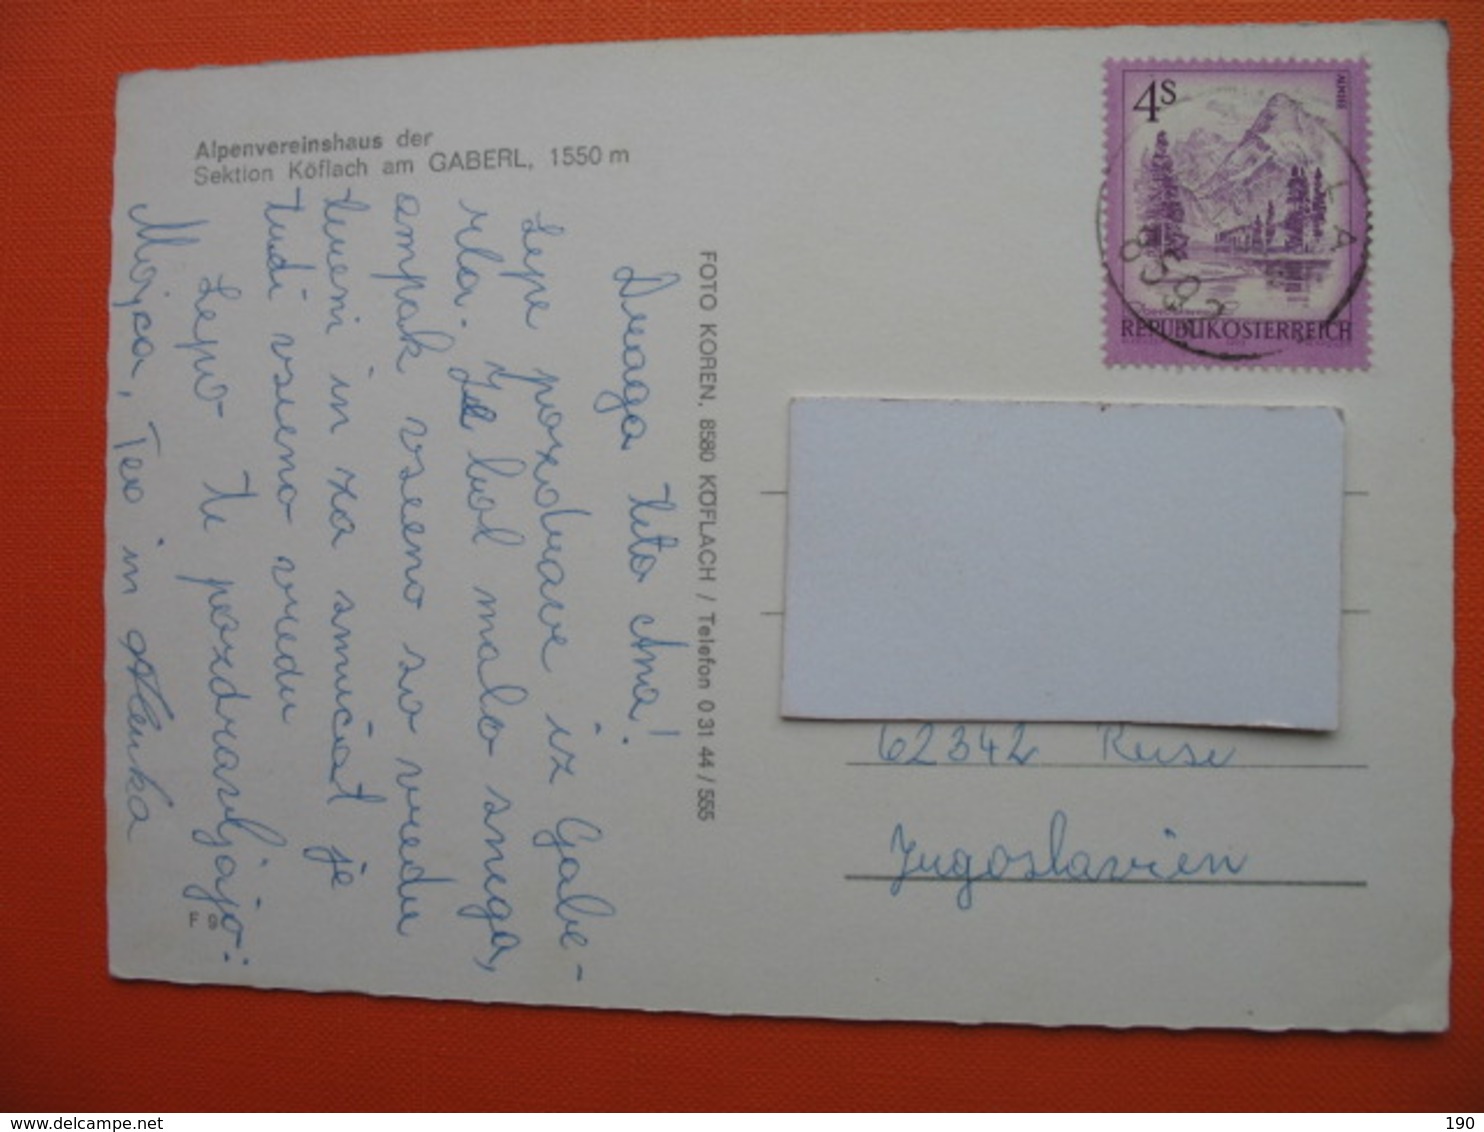 Alpenvereinshaus der
Sektion Köflach am GABERL, 1550 m
Draga teta Ana!
Lepe pozdrave iz Gabe-
rla. Je bol malo snega,
ampak vseeno so vredu
tereni in za smučat je
tudi vseeno vredu
Lepo te pozdravljajo:
Mojca, Teo in Alenka
F 9
FOTO KOREN, 8580 KÖFLACH / Telefon 0 31 44 / 555
4S
ALMSEE
REPUBLIK ÖSTERREICH
62342 Ruše
Jugoslavien
delcampe.net
190